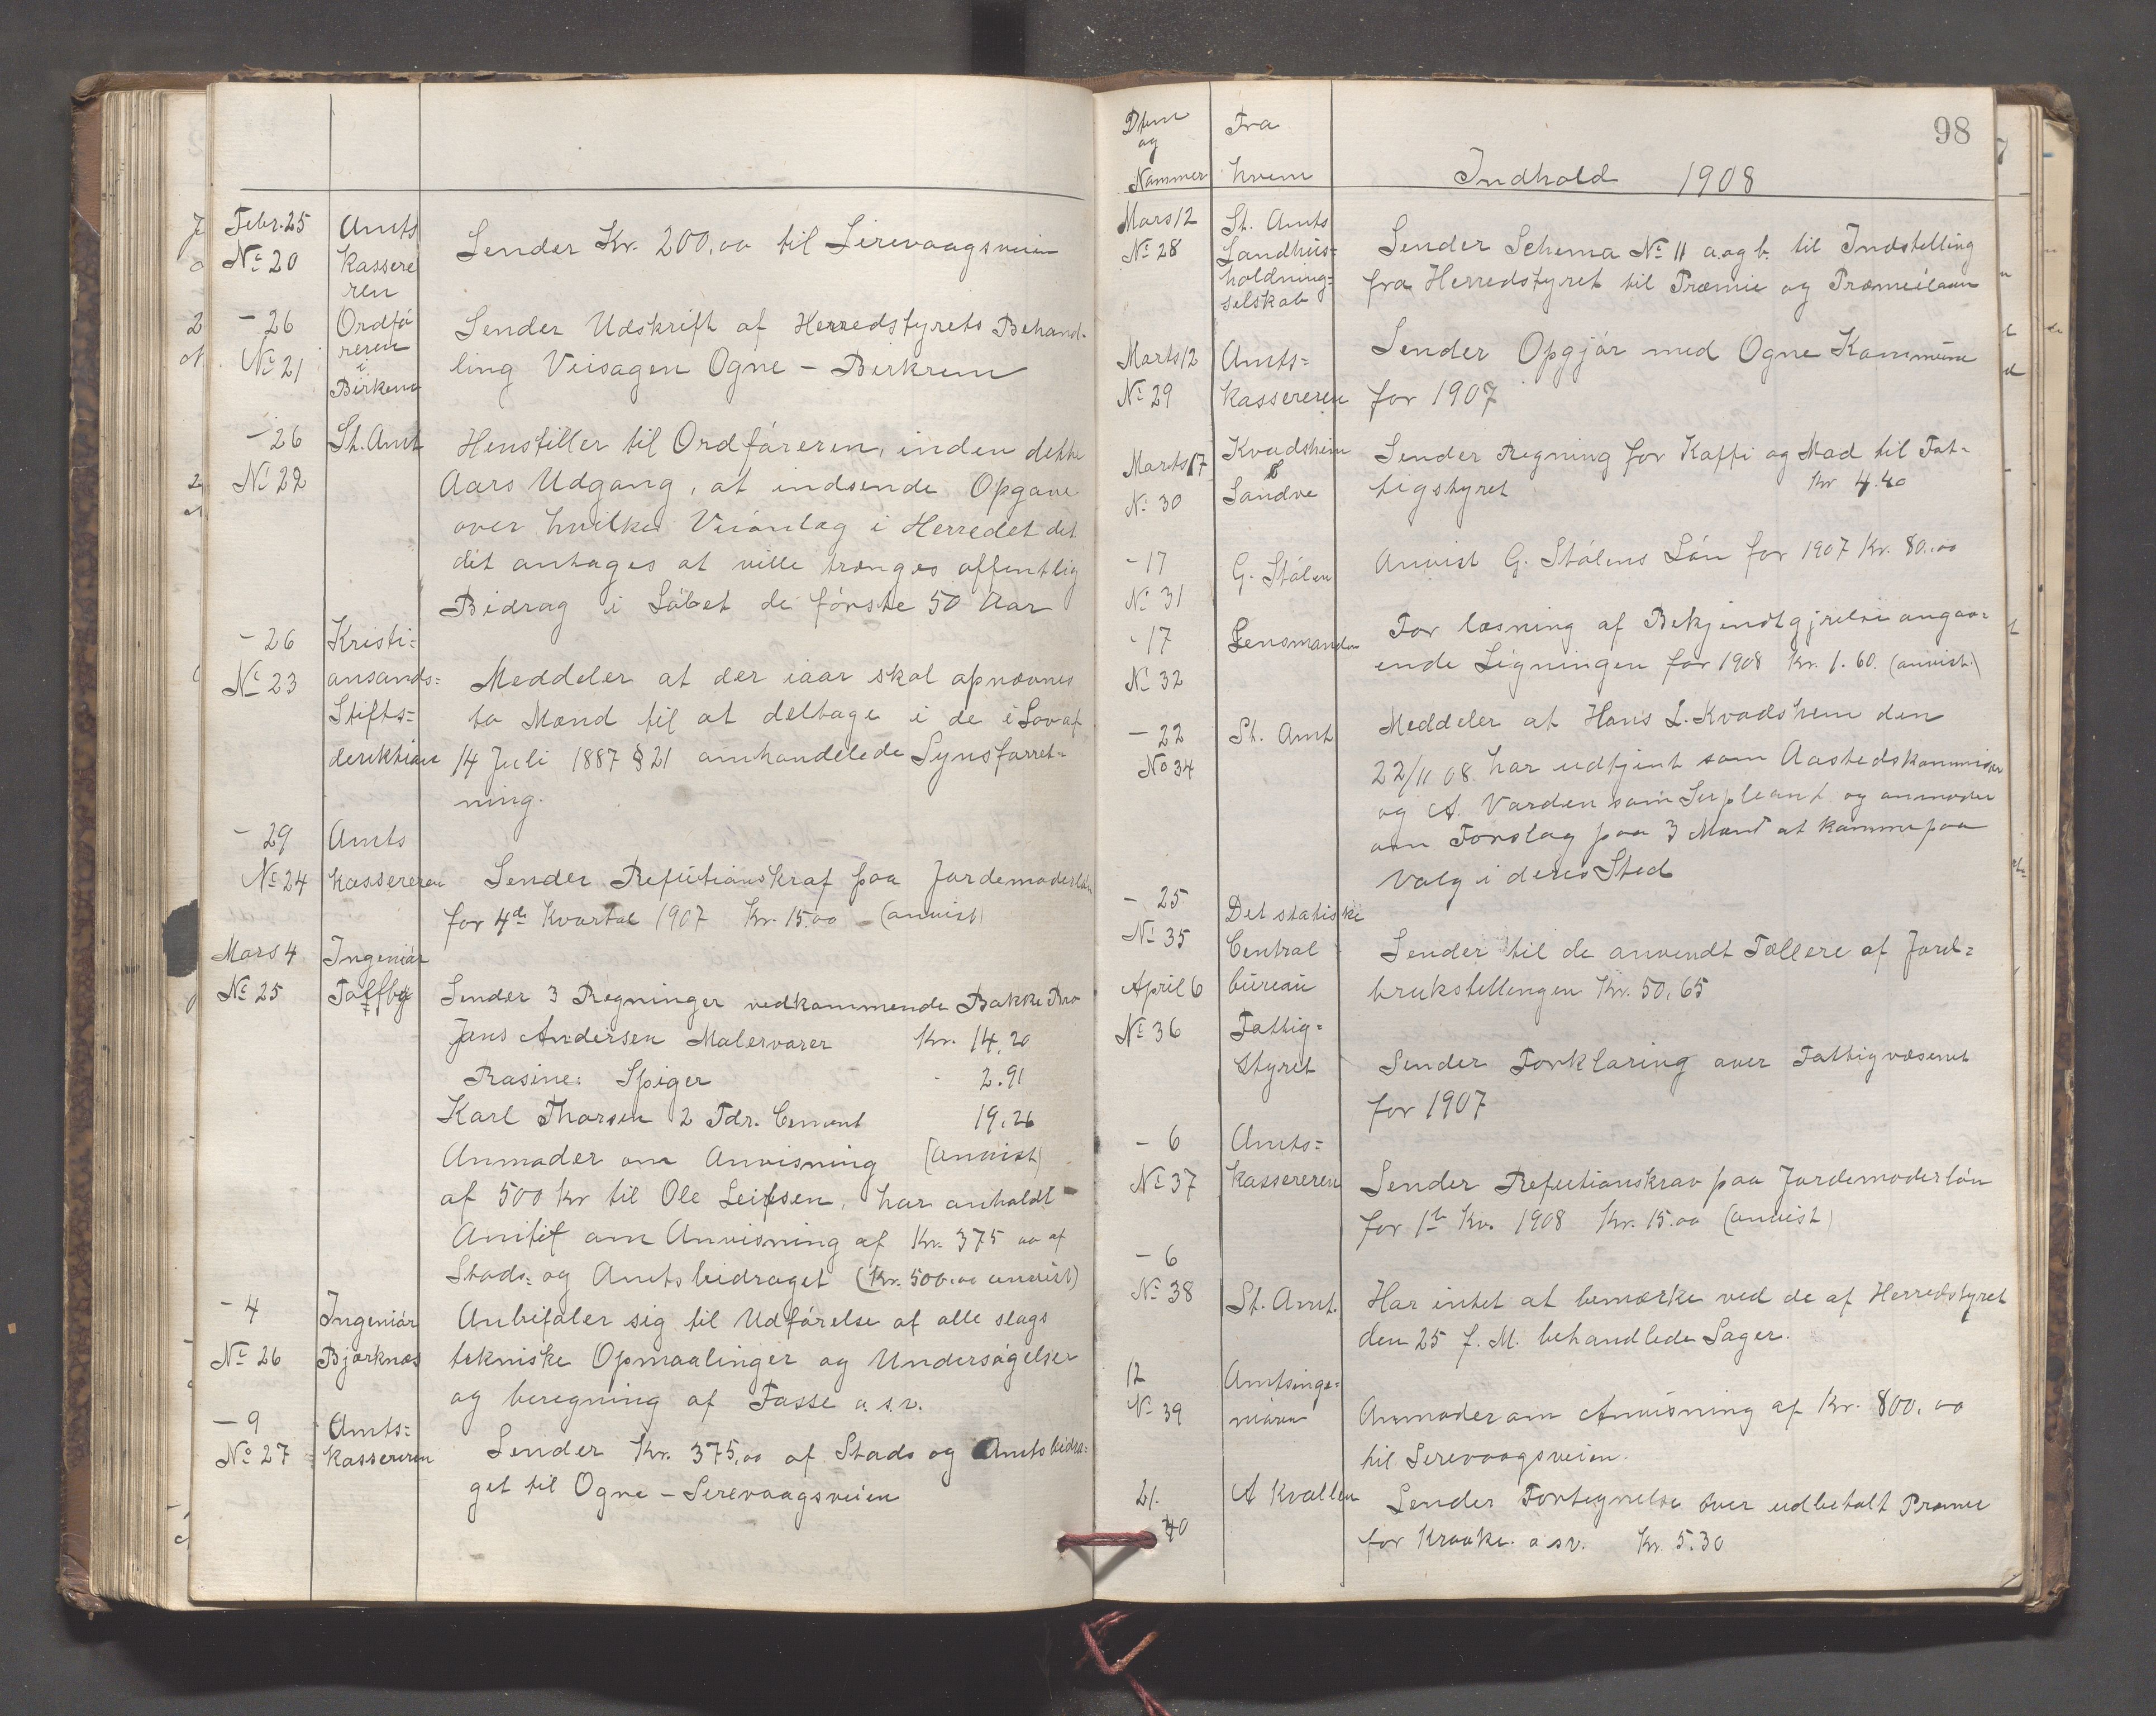 Febr. 25 Amts
Sender Kr. 200,00 til Sirevaagsveien
№ 20 Kassere
ren
- 26 Ordfø Sender Udskrift af Herredstyrets Behand-
№ 21 reren
i
ling Veisagen Ogne - Birkrem
Birkrem
- 26 St. Amt Henstiller til Ordføreren, inden dette
№ 22 Aars Udgang, at indsende Opgave
over hvilke Veianlæg i Herredet det
det antages at ville trænges offentlig
Bidrag i Løbet de første 50 Aar
- 26 Kristi=
№ 23 ansands= Meddeler at der iaar skal opnævnes
Stifts= to Mænd til at deltage i de i Lov af
direktion 14 Juli 1887 § 21 omhandlede Synsforret=
ning.
- 29 Amts
№ 24 kassereren Sender Refutionskraf paa Jordemoderløn
for 4de Kvartal 1907 Kr. 15.00 - (anvist)
Mars 4 Ingeniør
№ 25 Sender 3 Regninger vedkommende Bakke Bro
Jens Andersen Malervarer Kr. 14,20
Rasine: Spiger - 2.91
Karl Thorsen 2 Tdr. Cement 19.26
Anmoder om Anvisning (anvist)
af 500 kr til Ole Leifsen, har anholdt
Amtet om Anvisning af Kr. 375 00 af
Stads= og Amtsbidraget (Kr. 500.00 anvist)
- 4 Ingeniør Anbefaler sig til Udførelse af alle slags
№ 26 Bjørknæs tekniske Opmaalinger og Undersøgelser
og beregning af Fosse o.s.v.
- 9 Amts=
№ 27 Kassereren Sender Kr. 375,00 af Stads og Amtsbidra=
get til Ogne - Sirevaagsveien
98
Dtum Fra
og
Nummer hvem Indhold 1908
Mars 12 St. Amts
№ 28 Landhus= Sender Schema № 11 a. og b. til Indstelling
holdning=
selskab fra Herredstyret til Præmie og Præmielaan
Marts 12 Amts= Sender Opgjør med Ogne Kommune
№ 29 kassereren for 1907
Marts 17 Kvadsheim Sender Regning for Kaffi og Mad til Fat-
№ 30 & Sandve tigstyret Kr 4.40
- 17 G. Stölen Anvist G. Stölens Løn for 1907 Kr. 80.00
№ 31
- 17 Lensmanden For læsning af Bekjendtgjrelse angaa=
№ 32 ende Ligningen for 1908 Kr. 1.60. (anvist.)
- 22 St. Amt Meddeler at Hans L. Kvadshem den
No 34 22/11 08. har udtjent som Aastedskommisær
og A. Varden som Supleant og anmoder
om Forslag paa 3 Mænd at komme paa
Valg i deres Sted
- 25 Det statiske
№ 35 Central Sender til de anvendt Tællere af Jord=
April 6 büreau brukstellingen Kr. 50,65
№ 36 Fattig=
styret Sender Forklaring over Fattigvæsenet
for 1907
- 6 Amts=
№ 37 kassereren Sender Refutionskrav paa Jordemoderløn
for 1te Kv. 1908 Kr. 15.00 (anvist)
- 6
№ 38 St. Amt. Har intet at bemærke ved de af Herredstyret
den 25 f. M. behandlede Sager.
12 Amtsinge=
№ 39 niøren Anmoder om Anvisning af Kr. 800,00
til Sirevaagsveien.
21. A Kvallen Sender Fortegnelse over udbetalt Præmie
40 for Kraake. osv. Kr. 5.30